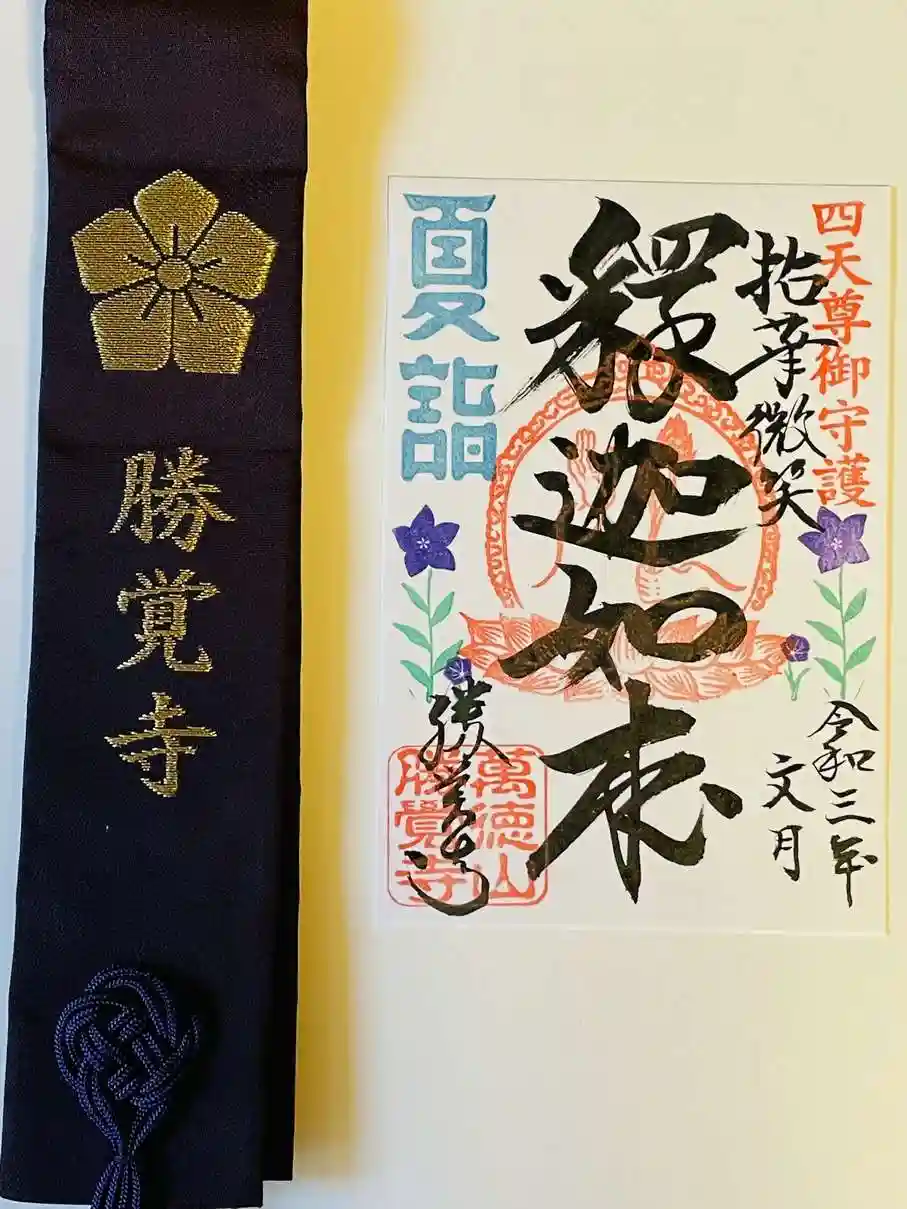 勝覚寺
四天尊御守護
拈華微笑
釋迦如来
夏詣
令和三年
文月
萬徳山
勝覺寺
勝覚寺